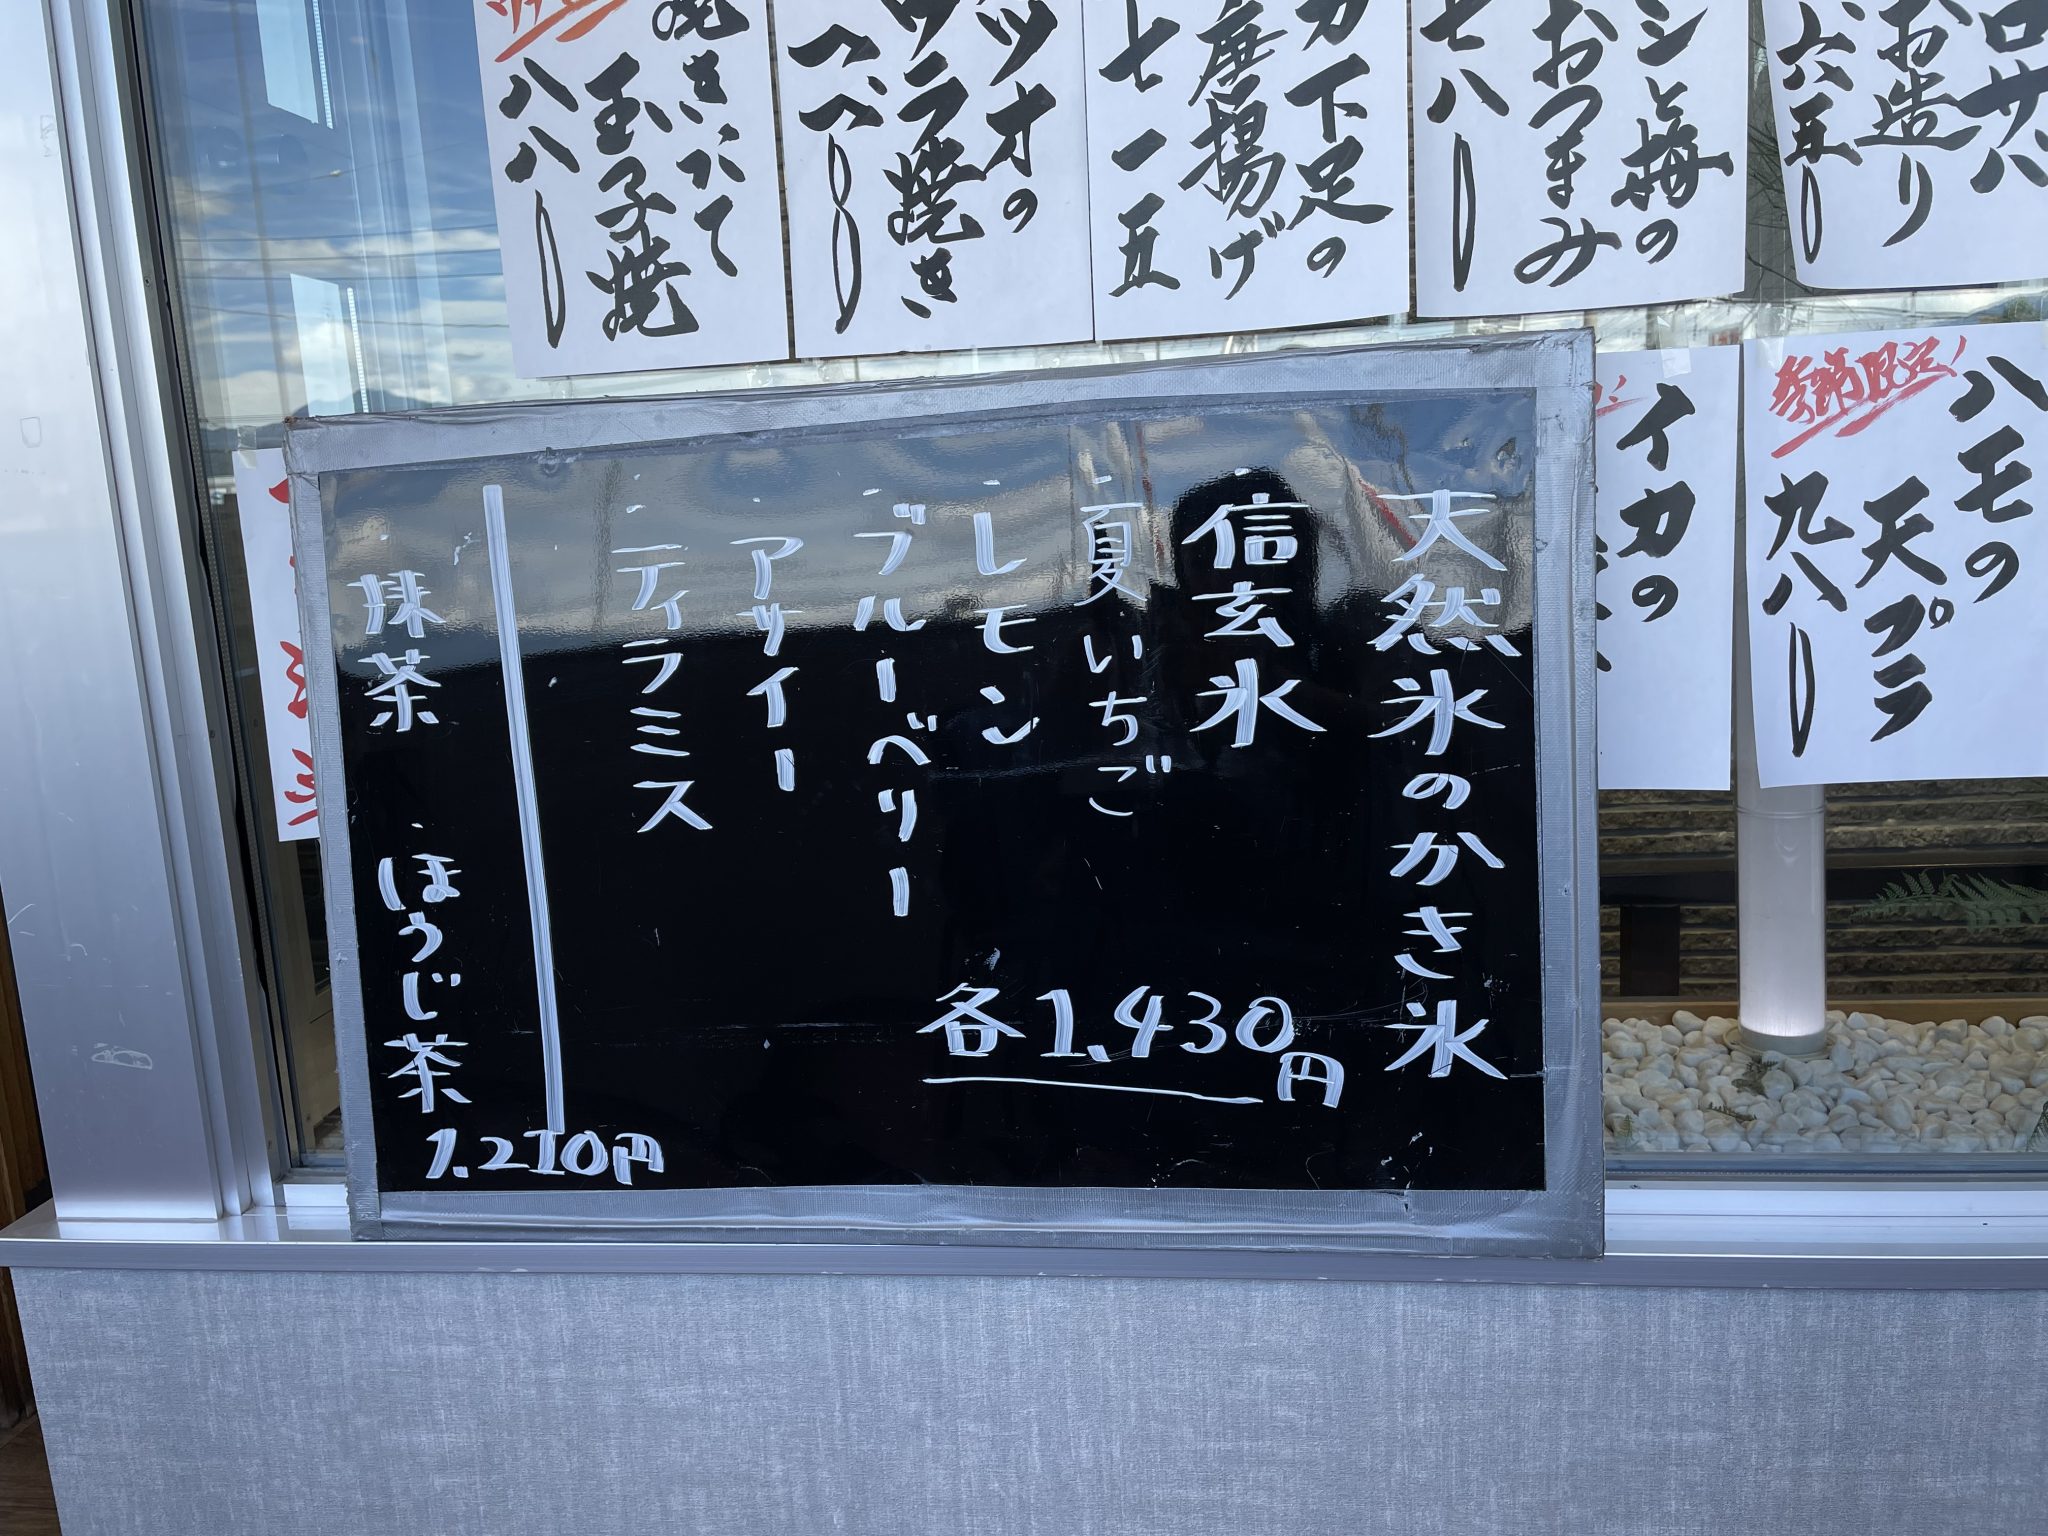 ロサバ
お造り
六五〇
シと梅の
おつまみ
七八〇
カ下足の
唐揚げ
七一五
ツオの
ワラ焼き
焼きたて
玉子焼
八八〇
ハモの
天プラ
季節限定!
九八〇
イカの
天然氷のかき氷
信玄氷
夏いちご
レモン
ブルーベリー
アサイー
ティラミス
各1,430円
抹茶
ほうじ茶
1,210円